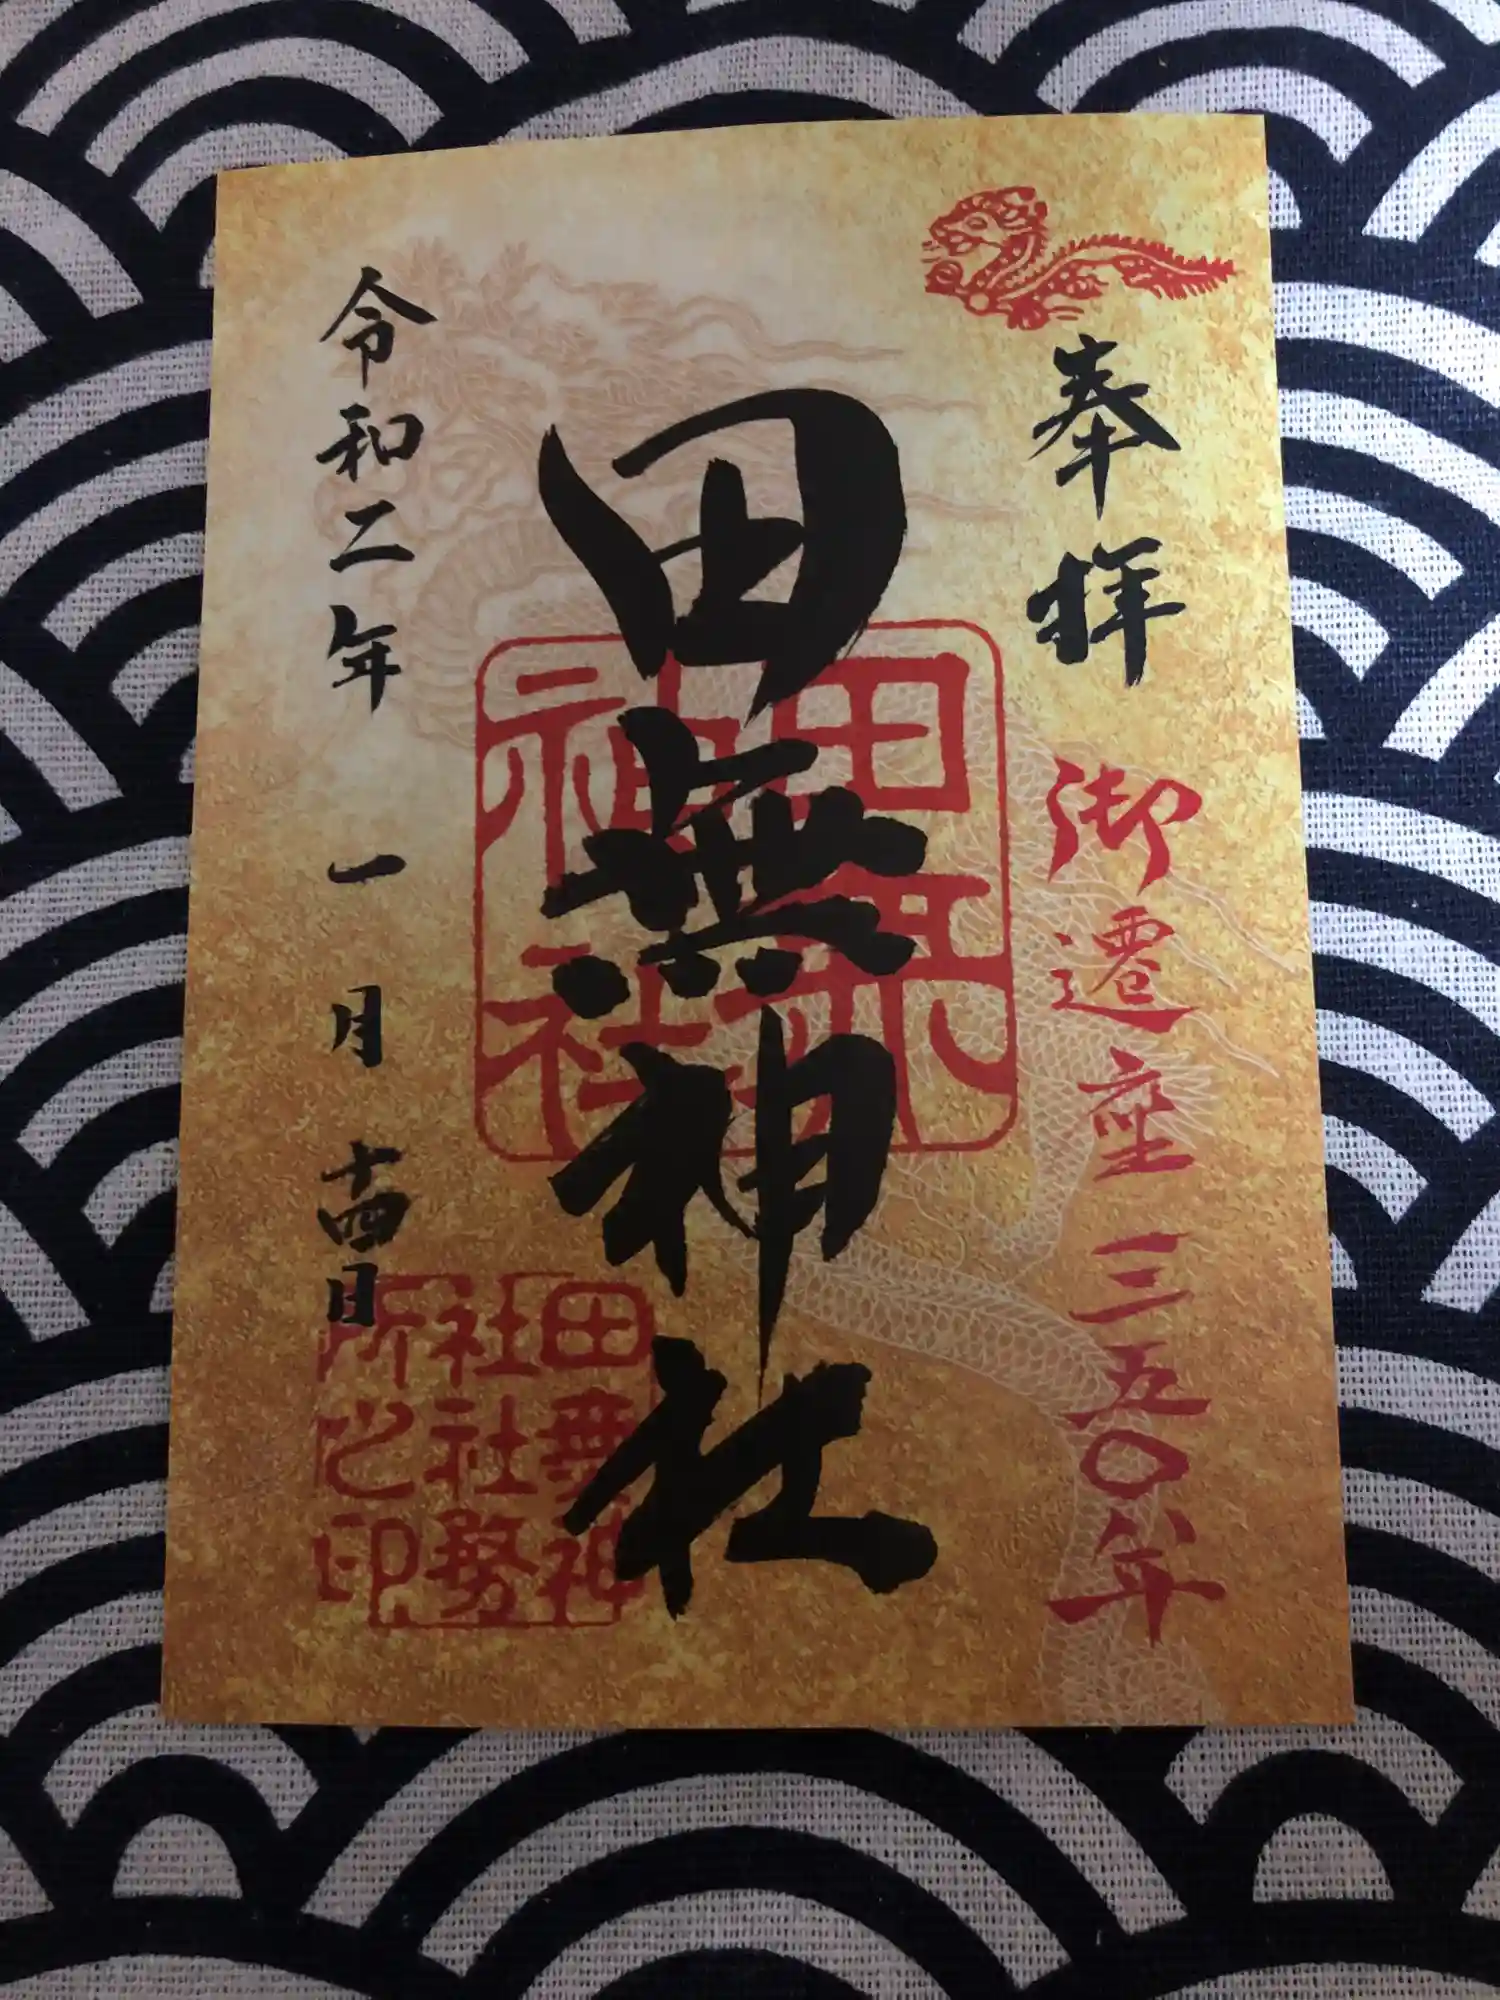 奉拝
御遷座三五〇年
田無神社
田無神社
令和二年一月十四日
田無神社社務所之印